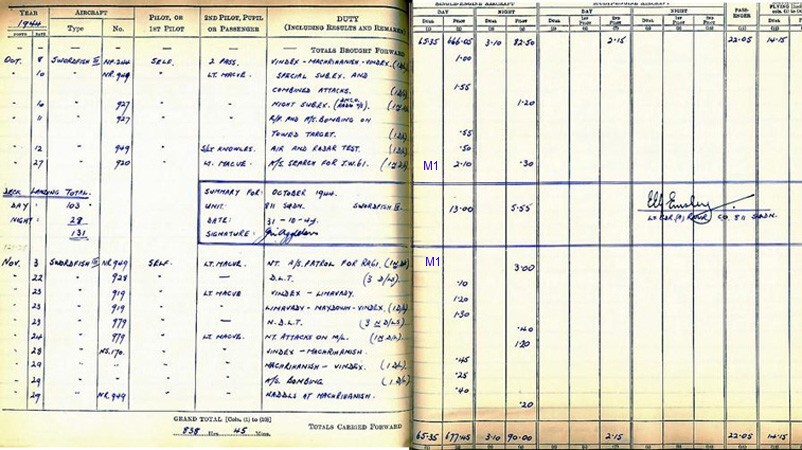 YEAR AIRCRAFT PILOT, OR 2ND PILOT, PUPIL DUTY
1944 Type No. 1ST PILOT OR PASSENGER (INCLUDING RESULTS AND REMARKS)
MONTH DATE
DAY NIGHT DAY NIGHT PASS-ENGER FLYING
DUAL PILOT DUAL PILOT DUAL 1ST PILOT 2ND PILOT DUAL 1ST PILOT 2ND PILOT DUAL PILOT
— — — — — — TOTALS BROUGHT FORWARD 65.35 666.05 3.10 82.50 2.15 22.05 14.15
OCT. 8 SWORDFISH III NF.244 SELF. 2 PASS. VINDEX – MACHRIHANISH – VINDEX. 1.00
" 10 " NR.949 " LT. MAGUE. SPECIAL SUBEX. AND
COMBINED ATTACKS. 1.55
" 10 " 927 " " NIGHT SUBEX. 1.20
" 11 " 927 " " R/P. AND A/S. BOMBING ON
TOWED TARGET. .55
" 12 " 949 " S/LT KNOWLES. AIR AND RADAR TEST. .50
" 27 " 920 " LT. MAGUE. A/S. SEARCH FOR J.W.61. M1 2.10 .30
DECK LANDING TOTAL.
DAY : 103
NIGHT : 28
131
SUMMARY FOR: OCTOBER 1944.
UNIT: 811 SQDN. SWORDFISH III
DATE: 31-10-44.
SIGNATURE:
13.00 5.55
CO. 811 SQDN.
NOV. 3 SWORDFISH III NR.949 SELF. LT. MAGUE. NT. A/S. PATROL FOR RA61. M1 3.00
" 22 " 928 " — D.L.T. (3 D/LS) .10
" 23 " 919 " LT MAGUE VINDEX – LIMAVADY. 1.20
" 23 " 919 " " LIMAVADY – MAYDOWN – VINDEX. 1.30
" 23 " 979 " — N.D.L.T. .40
" 24 " 979 " LT. MAGUE. NT. ATTACKS ON M/L. 1.20
" 28 " NS.170. " — VINDEX – MACHRIHANISH. .45
" 29 " " " " MACHRIHANISH – VINDEX. .25
" 29 " " " " A/S. BOMBING .40
" 29 " NR.949 " " ADDLS AT MACHRIHANISH. .20
GRAND TOTAL [Cols. (1) to (10)]
838 Hrs. 45 Mins. TOTALS CARRIED FORWARD 65.35 677.45 3.10 90.00 2.15 22.05 14.15